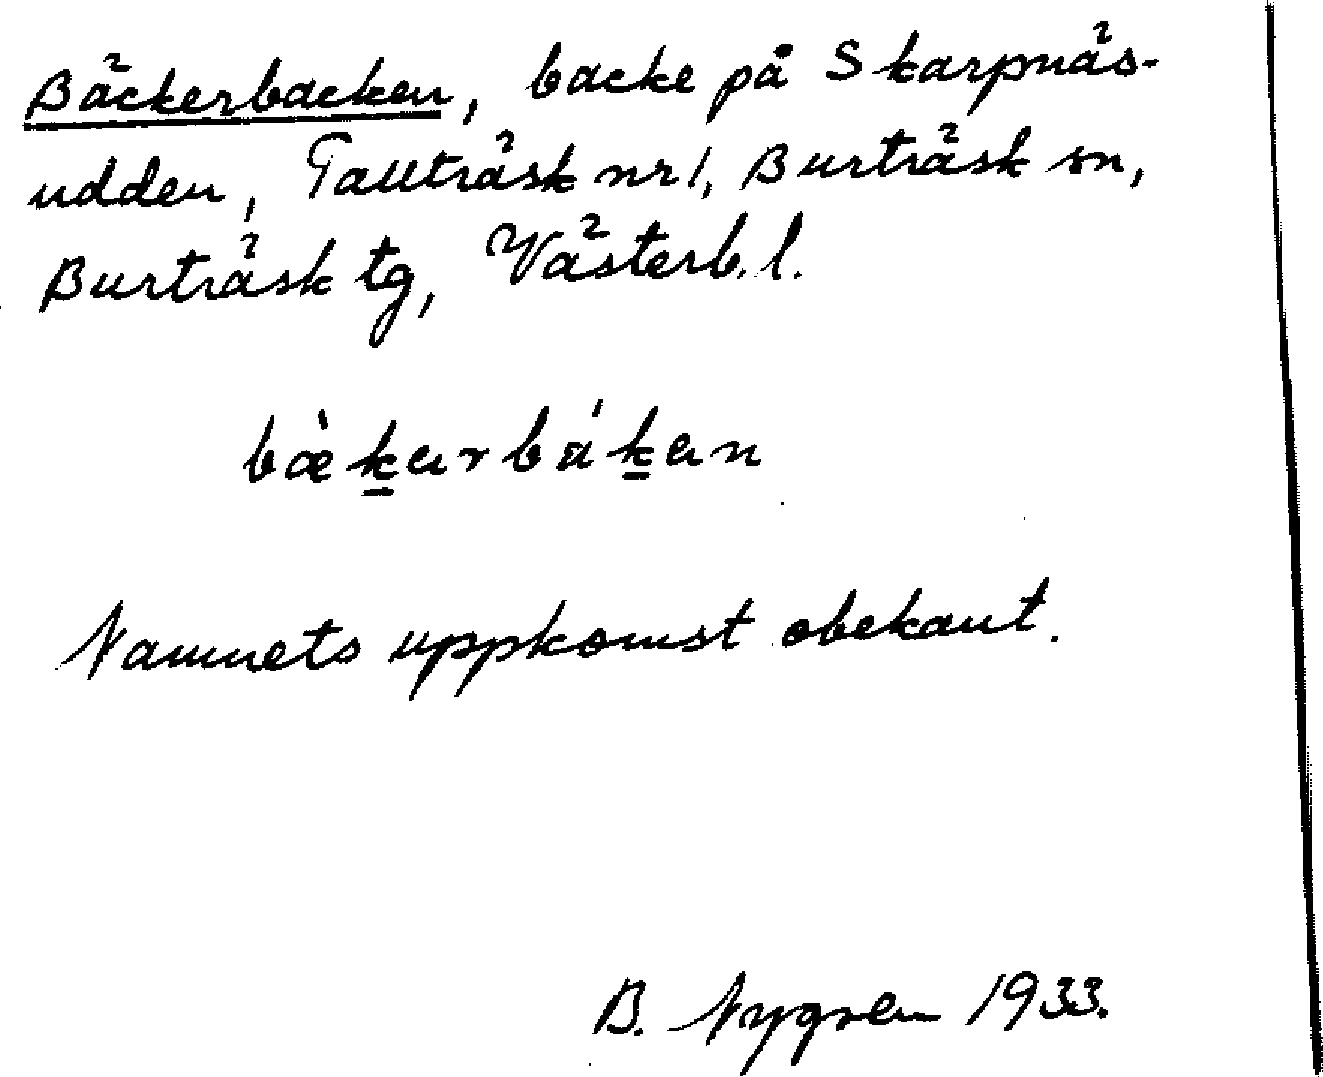 Bäckerbacken, backe på Skarpnäs-
udden, Tallträsk nr 1, Burträsk sn,
Burträsk tg, Västerb. l.
bæ̀k̲arbák̲an
Namnets uppkomst obekant.
B. Nygren 1933.